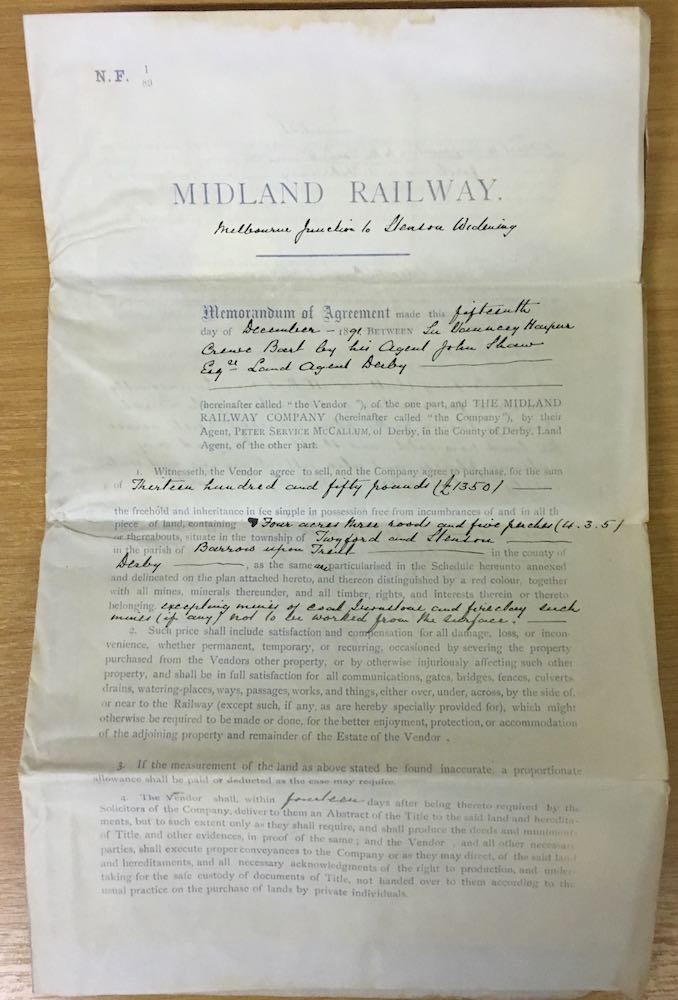 N. F. 1/89
MIDLAND RAILWAY.
Melbourne Junction to Stenson Widening
Memorandum of Agreement made this fifteenth
day of December – 1891 BETWEEN Sir Vauncey Harpur
Crewe Bart by his Agent John Shaw
Esqre Land Agent Derby
(hereinafter called "the Vendor "), of the one part, and THE MIDLAND
RAILWAY COMPANY (hereinafter called "the Company"), by their
Agent, PETER SERVICE MCCALLUM, of Derby, in the County of Derby, Land
Agent, of the other part.
1. Witnesseth, the Vendor agree to sell, and the Company agree to purchase, for the sum
of Thirteen hundred and fifty pounds (£1350)
the freehold and inheritance in fee simple in possession free from incumbrances of and in all th
piece of land, containing Four acres three roods and five perches (4.3.5)
or thereabouts, situate in the township of Twyford and Stenson
in the parish of Barrow upon Trent in the county of
Derby , as the same are particularised in the Schedule hereunto annexed
and delineated on the plan attached hereto, and thereon distinguished by a red colour, together
with all mines, minerals thereunder, and all timber, rights, and interests therein or thereto
belonging. excepting mines of coal Ironstone and fireclay such
mines (if any) not to be worked from the surface.
2. Such price shall include satisfaction and compensation for all damage, loss, or incon-
venience, whether permanent, temporary, or recurring, occasioned by severing the property
purchased from the Vendors other property, or by otherwise injuriously affecting such other
property, and shall be in full satisfaction for all communications, gates, bridges, fences, culverts
drains, watering-places, ways, passages, works, and things, either over, under, across, by the side of,
or near to the Railway (except such, if any, as are hereby specially provided for), which might
otherwise be required to be made or done, for the better enjoyment, protection, or accommodation
of the adjoining property and remainder of the Estate of the Vendor .
3. If the measurement of the land as above stated be found inaccurate, a proportionate
allowance shall be paid or deducted as the case may require.
4. The Vendor shall, within fourteen days after being thereto required by the
Solicitors of the Company, deliver to them an Abstract of the Title to the said land and heredita-
ments, but to such extent only as they shall require, and shall produce the deeds and muniments
of Title, and other evidences, in proof of the same; and the Vendor , and all other necessary
parties, shall execute proper conveyances to the Company or as they may direct, of the said land
and hereditaments, and all necessary acknowledgments of the right to production, and under-
taking for the safe custody of documents of Title, not handed over to them according to the
usual practice on the purchase of lands by private individuals.